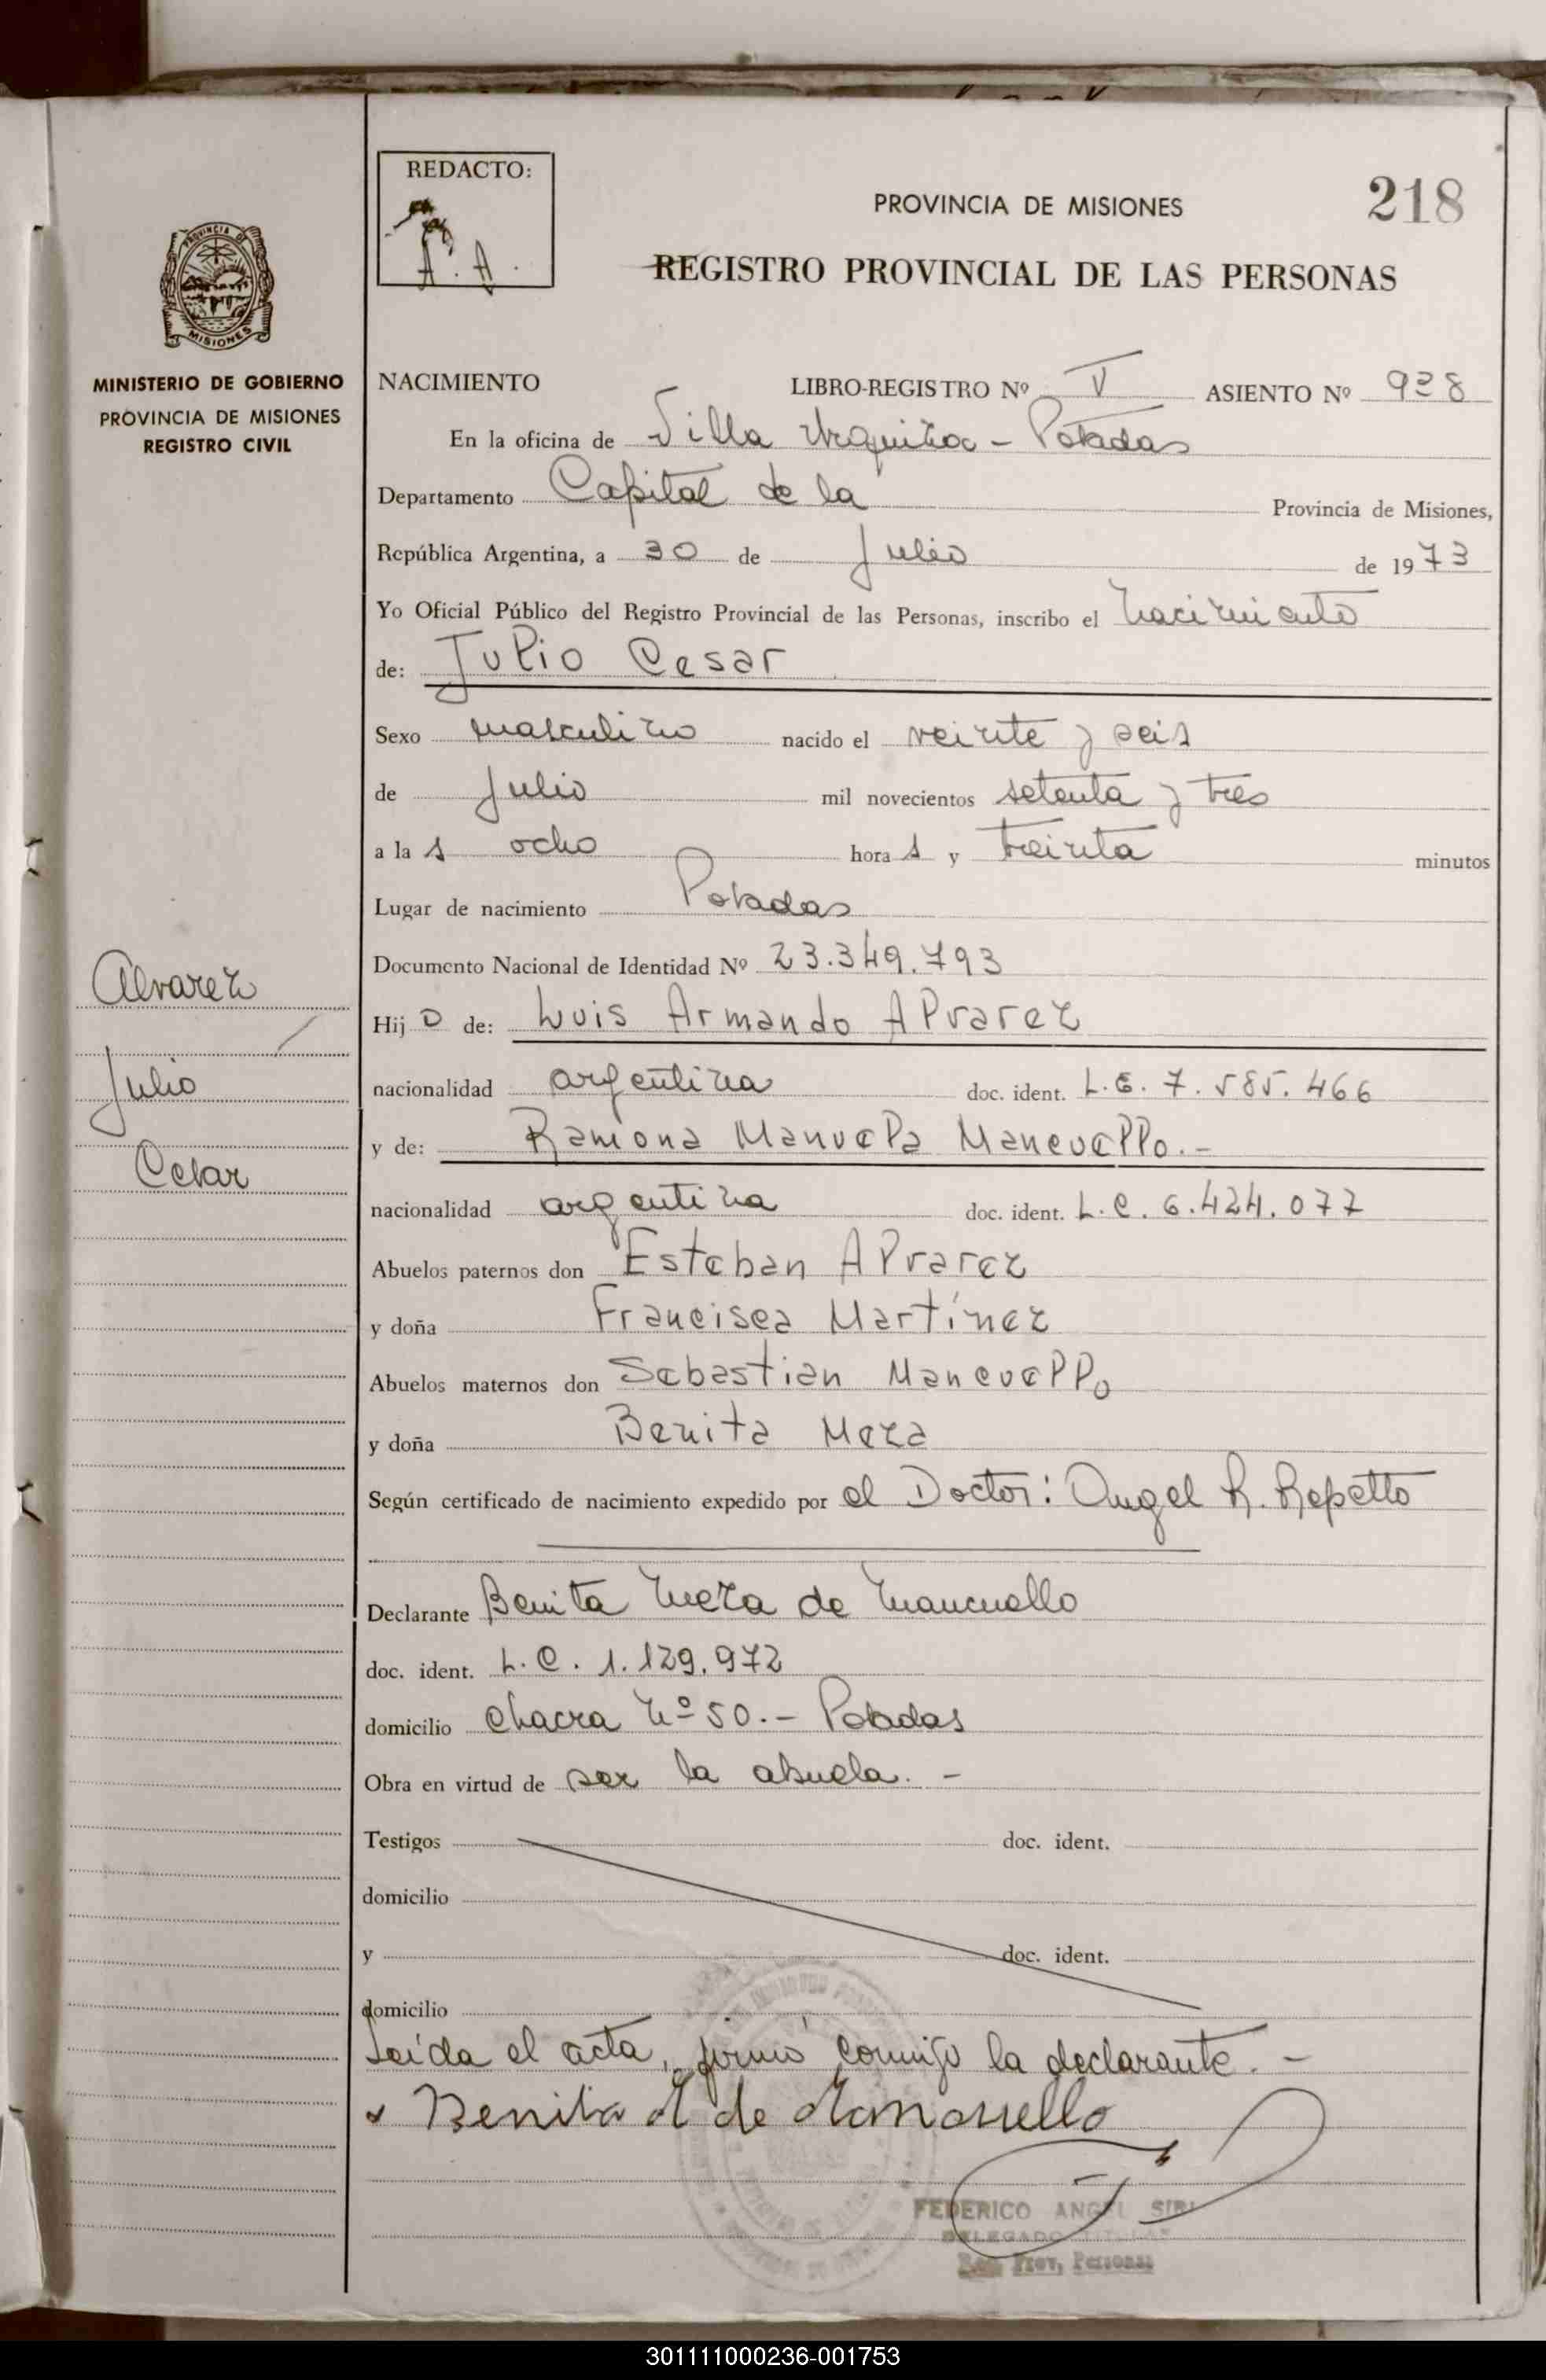 REDACTO:
A. A.
PROVINCIA DE MISIONES
218
REGISTRO PROVINCIAL DE LAS PERSONAS
PROVINCIA DE
MISIONES
MINISTERIO DE GOBIERNO
PROVINCIA DE MISIONES
REGISTRO CIVIL
NACIMIENTO LIBRO-REGISTRO Nº V ASIENTO Nº 928
En la oficina de Villa Urquiza - Posadas
Departamento Capital de la Provincia de Misiones,
República Argentina, a 30 de Julio de 1973
Yo Oficial Público del Registro Provincial de las Personas, inscribo el nacimiento
de: Julio Cesar
Sexo masculino nacido el veinte y seis
de Julio mil novecientos setenta y tres
a la s ocho hora s y treinta minutos
Lugar de nacimiento Posadas
Documento Nacional de Identidad Nº 23.349.793
Alvarez
Julio
Cesar
Hij o de: Luis Armando Alvarez
nacionalidad argentina doc. ident. L.E. 7.585.466
y de: Ramona Manuela Mancuello.-
nacionalidad argentina doc. ident. L.C. 6.424.077
Abuelos paternos don Esteban Alvarez
y doña Francisca Martínez
Abuelos maternos don Sebastian Mancuello
y doña Benita Meza
Según certificado de nacimiento expedido por el Doctor: Angel R. Repetto
Declarante Benita Meza de Mancuello
doc. ident. L.C. 1.129.972
domicilio Chacra Nº 50.- Posadas
Obra en virtud de ser la abuela.-
Testigos doc. ident.
domicilio
y doc. ident.
domicilio
Leída el acta, firmó conmigo la declarante.-
Benita M de Mancuello
FEDERICO ANGEL SIRI
DELEGADO TITULAR
Reg. Prov. Personas
301111000236-001753